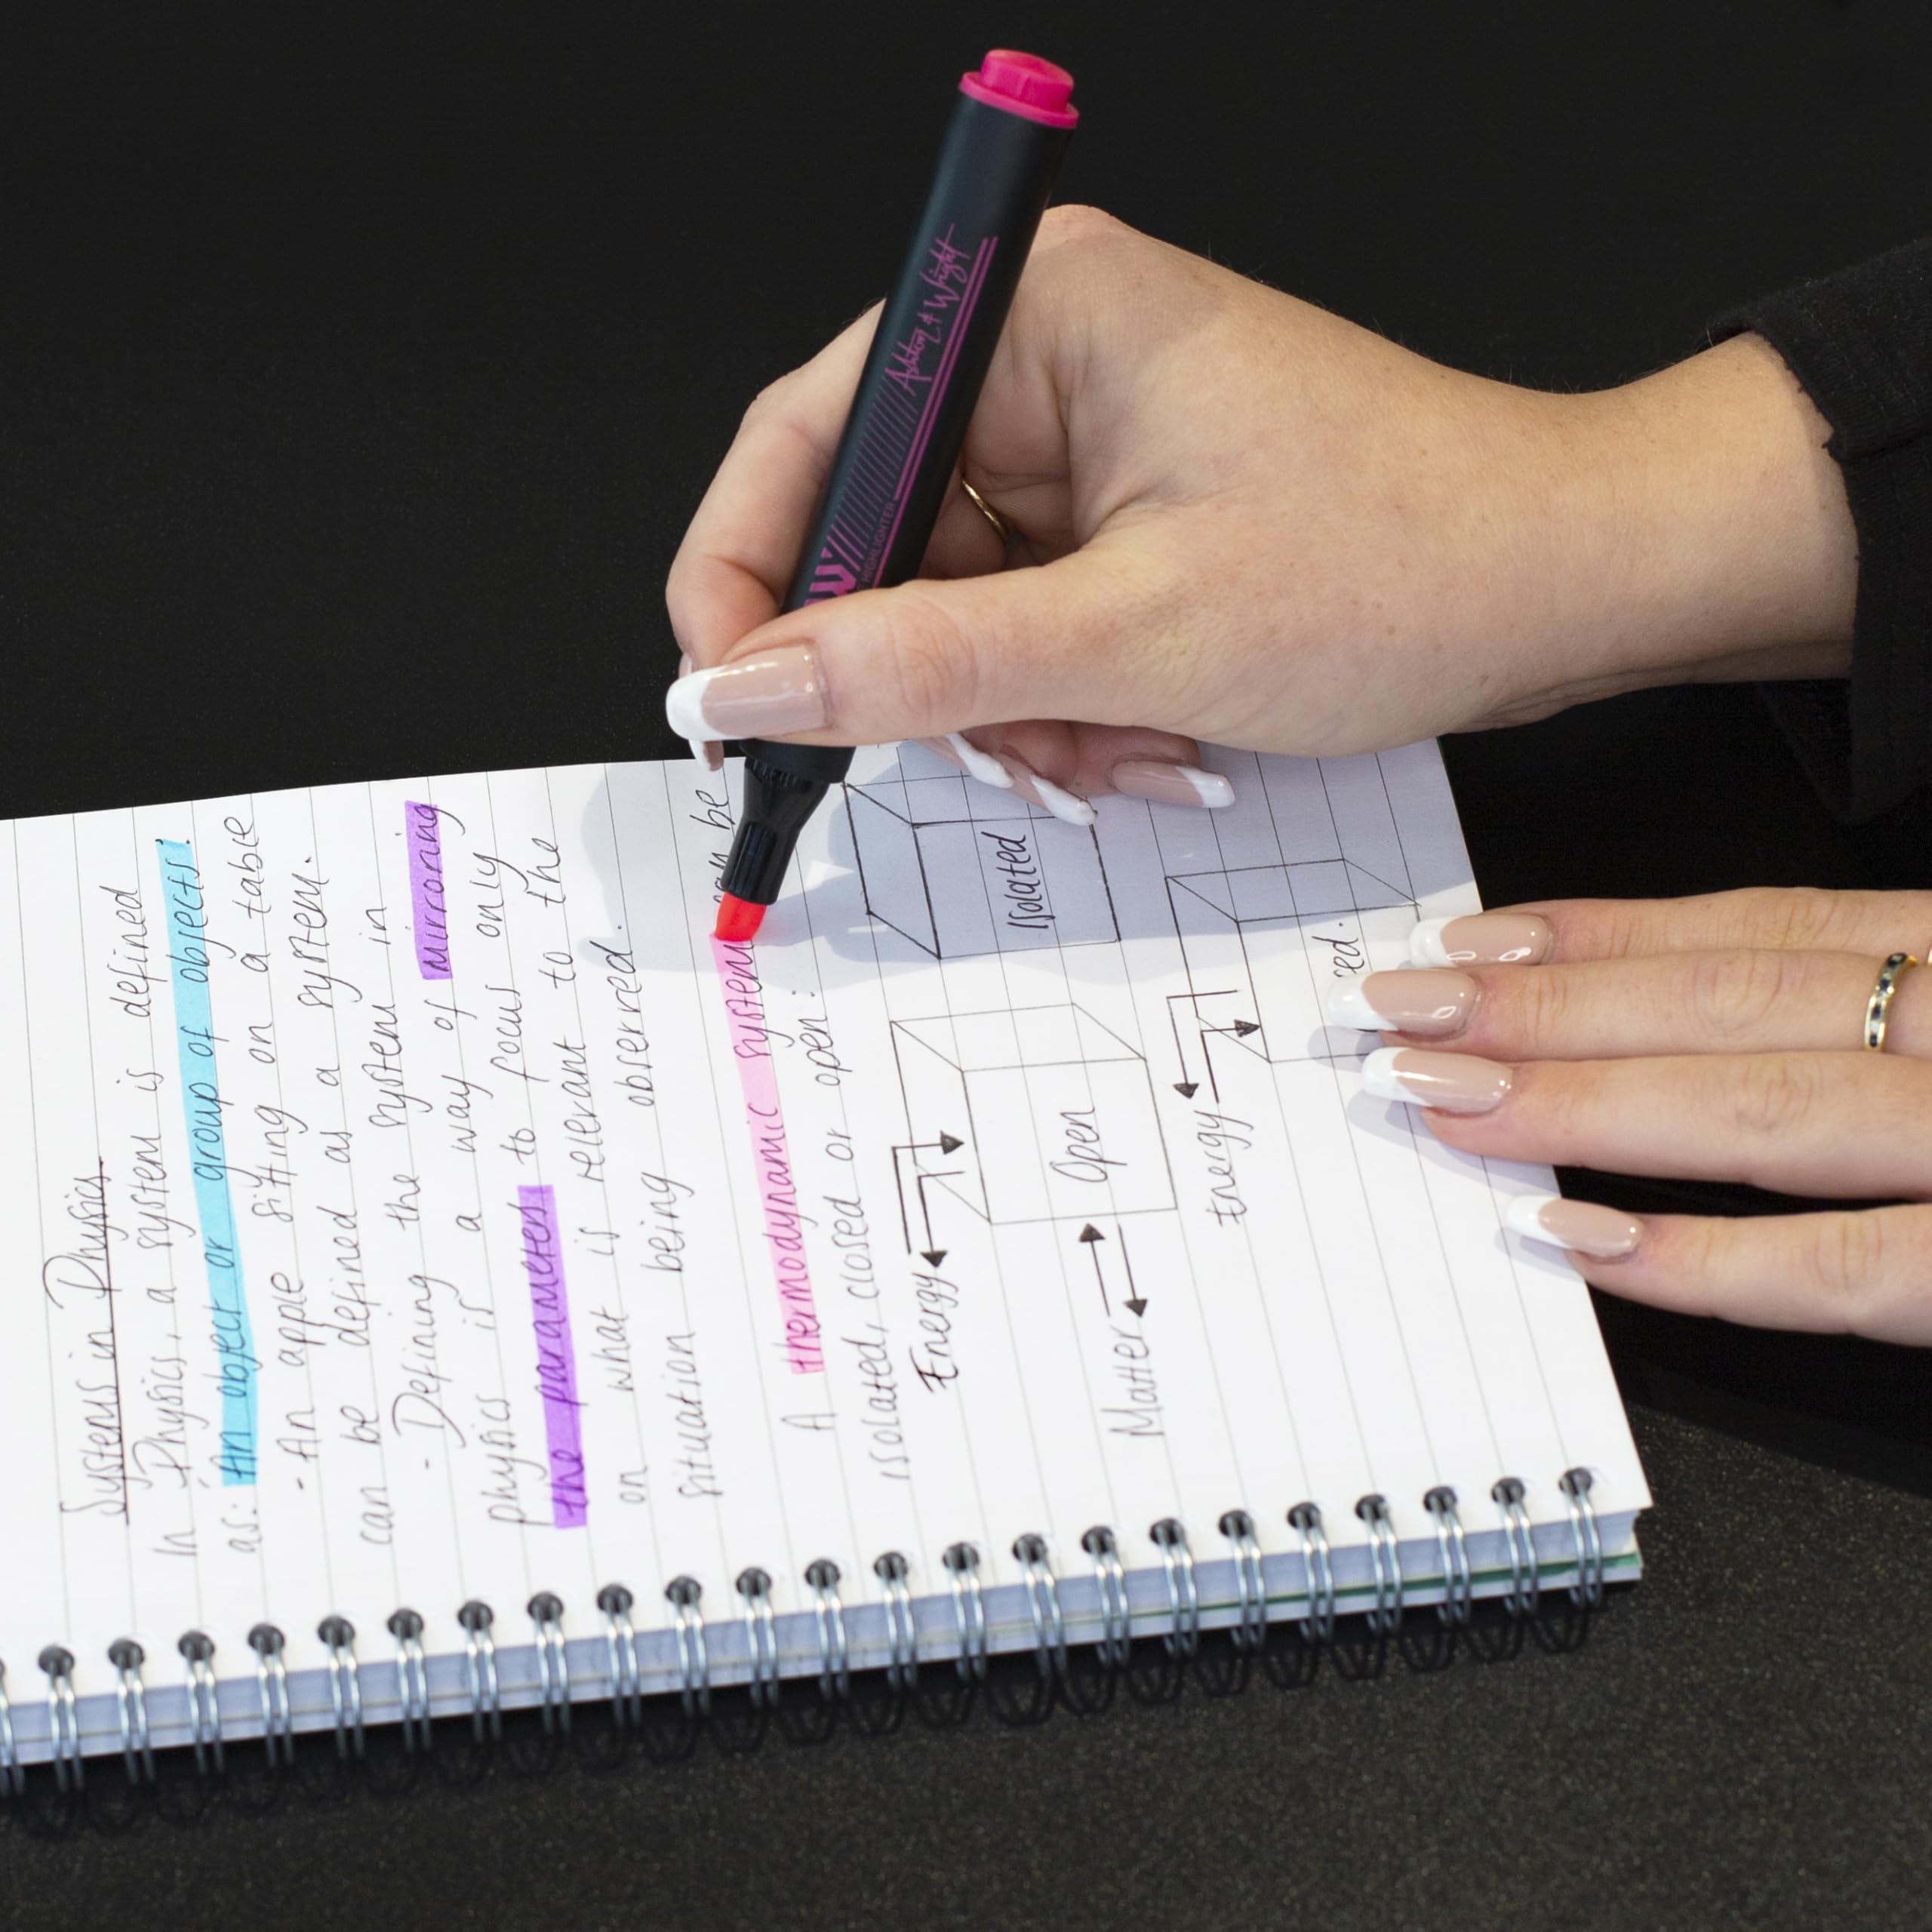 Systems in Physics
In Physics, a system is defined
as: An object or group of objects!
- An apple sitting on a table
can be defined as a system.
- Defining the system in
physics is a way of mirroring
the parameters to focus only
on what is relevant to the
situation being observed.
A thermodynamic system can be
isolated, closed or open:
Energy
Isolated
Open
Matter
Energy
Ashton & Wright
HIGHLIGHTER